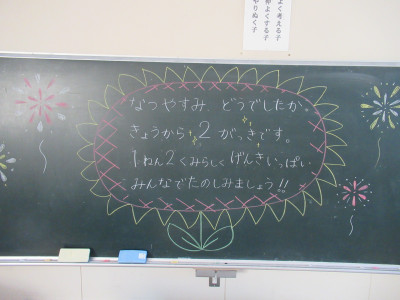 よく考える子
仲よくする子
やりぬく子
なつやすみ、どうでしたか。
きょうから2がっきです。
1ねん2くみらしくげんきいっぱい
みんなでたのしみましょう!!